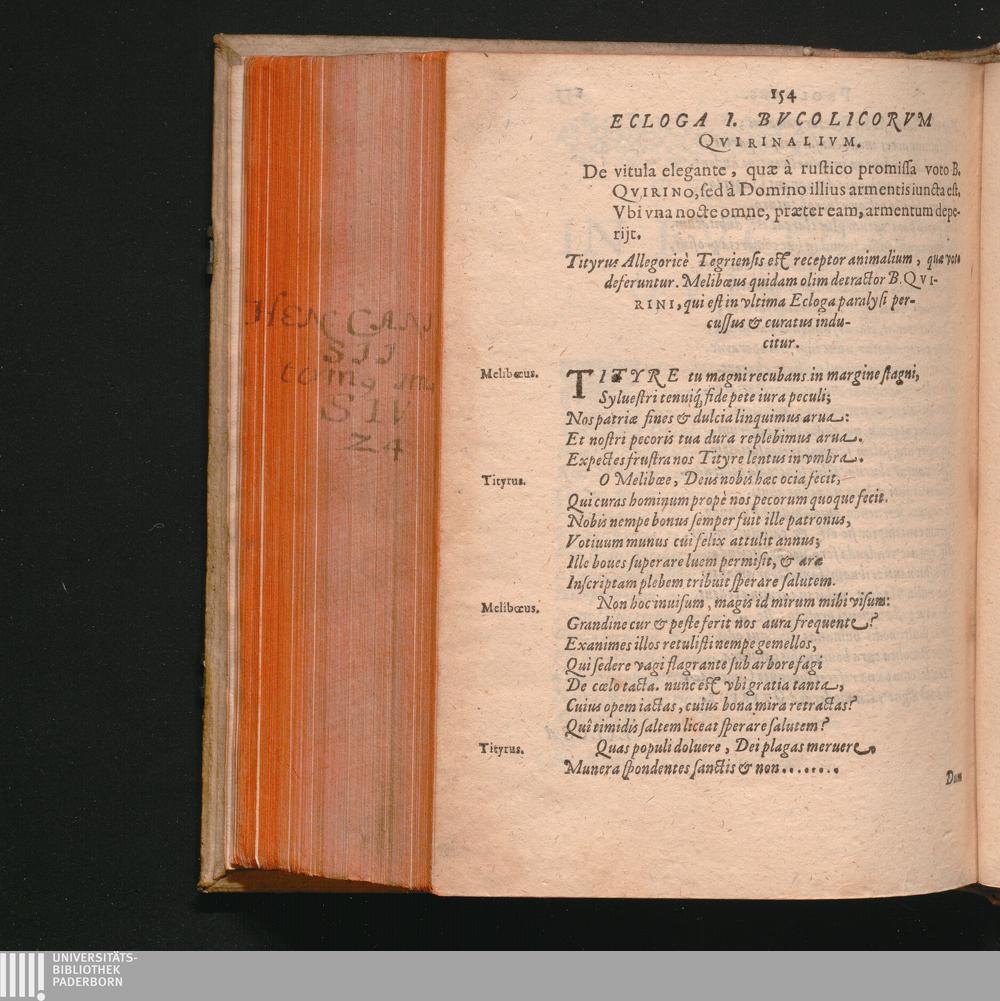 154
ECLOGA I. BVCOLICORVM
QVIRINALIVM.
De vitula elegante, quæ à rustico promissa voto B.
QVIRINO, sed à Domino illius armentis iuncta est,
Vbi vna nocte omne, præter eam, armentum depe-
rijt.
Tityrus Allegoricè Tegriensis est receptor animalium, quæ voto
deferuntur. Melibœus quidam olim detractor B. QVI-
RINI, qui est in vltima Ecloga paralysi per-
cussus & curatus indu-
citur.
Melibœus. TITYRE tu magni recubans in margine stagni,
Syluestri tenuiq́ fide pete iura peculi;
Nos patriæ fines & dulcia linquimus arua:
Et nostri pecoris tua dura replebimus arua.
Expectes frustra nos Tityre lentus in vmbra.
Tityrus. O Melibœe, Deus nobis hæc ocia fecit,
Qui curas hominum propè nos pecorum quoque fecit.
Nobis nempe bonus semper fuit ille patronus,
Votiuum munus cui felix attulit annus;
Ille boues superare luem permisit, & aræ
Inscriptam plebem tribuit sperare salutem.
Melibœus. Non hoc inuisum, magis id mirum mihi visum:
Grandine cur & peste ferit nos aura frequente?
Exanimes illos retulisti nempe gemellos,
Qui sedere vagi flagrante sub arbore fagi
De cœlo tacta. nunc est vbi gratia tanta,
Cuius opem iactas, cuius bona mira retractas?
Quî timidis saltem liceat sperare salutem?
Tityrus. Quas populi doluere, Dei plagas meruere.
Munera spondentes sanctis & non........
Dum
HEN CANI
SII
tomg im
SIV
24
UNIVERSITÄTS-
BIBLIOTHEK
PADERBORN